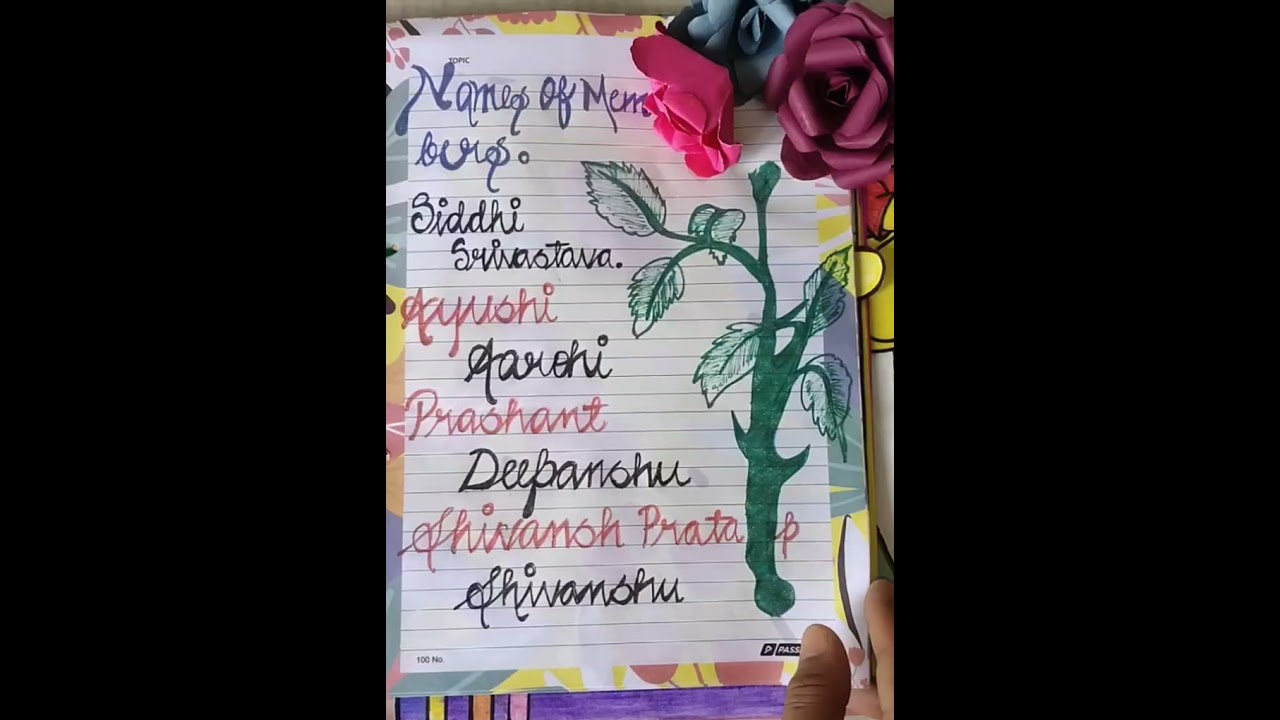 TOPIC
Names Of Mem
bers.
Siddhi
Srivastava.
Ayushi
Aarohi
Prashant
Deepanshu
Shivansh Pratap
Shivanshu
100 No.
PASS